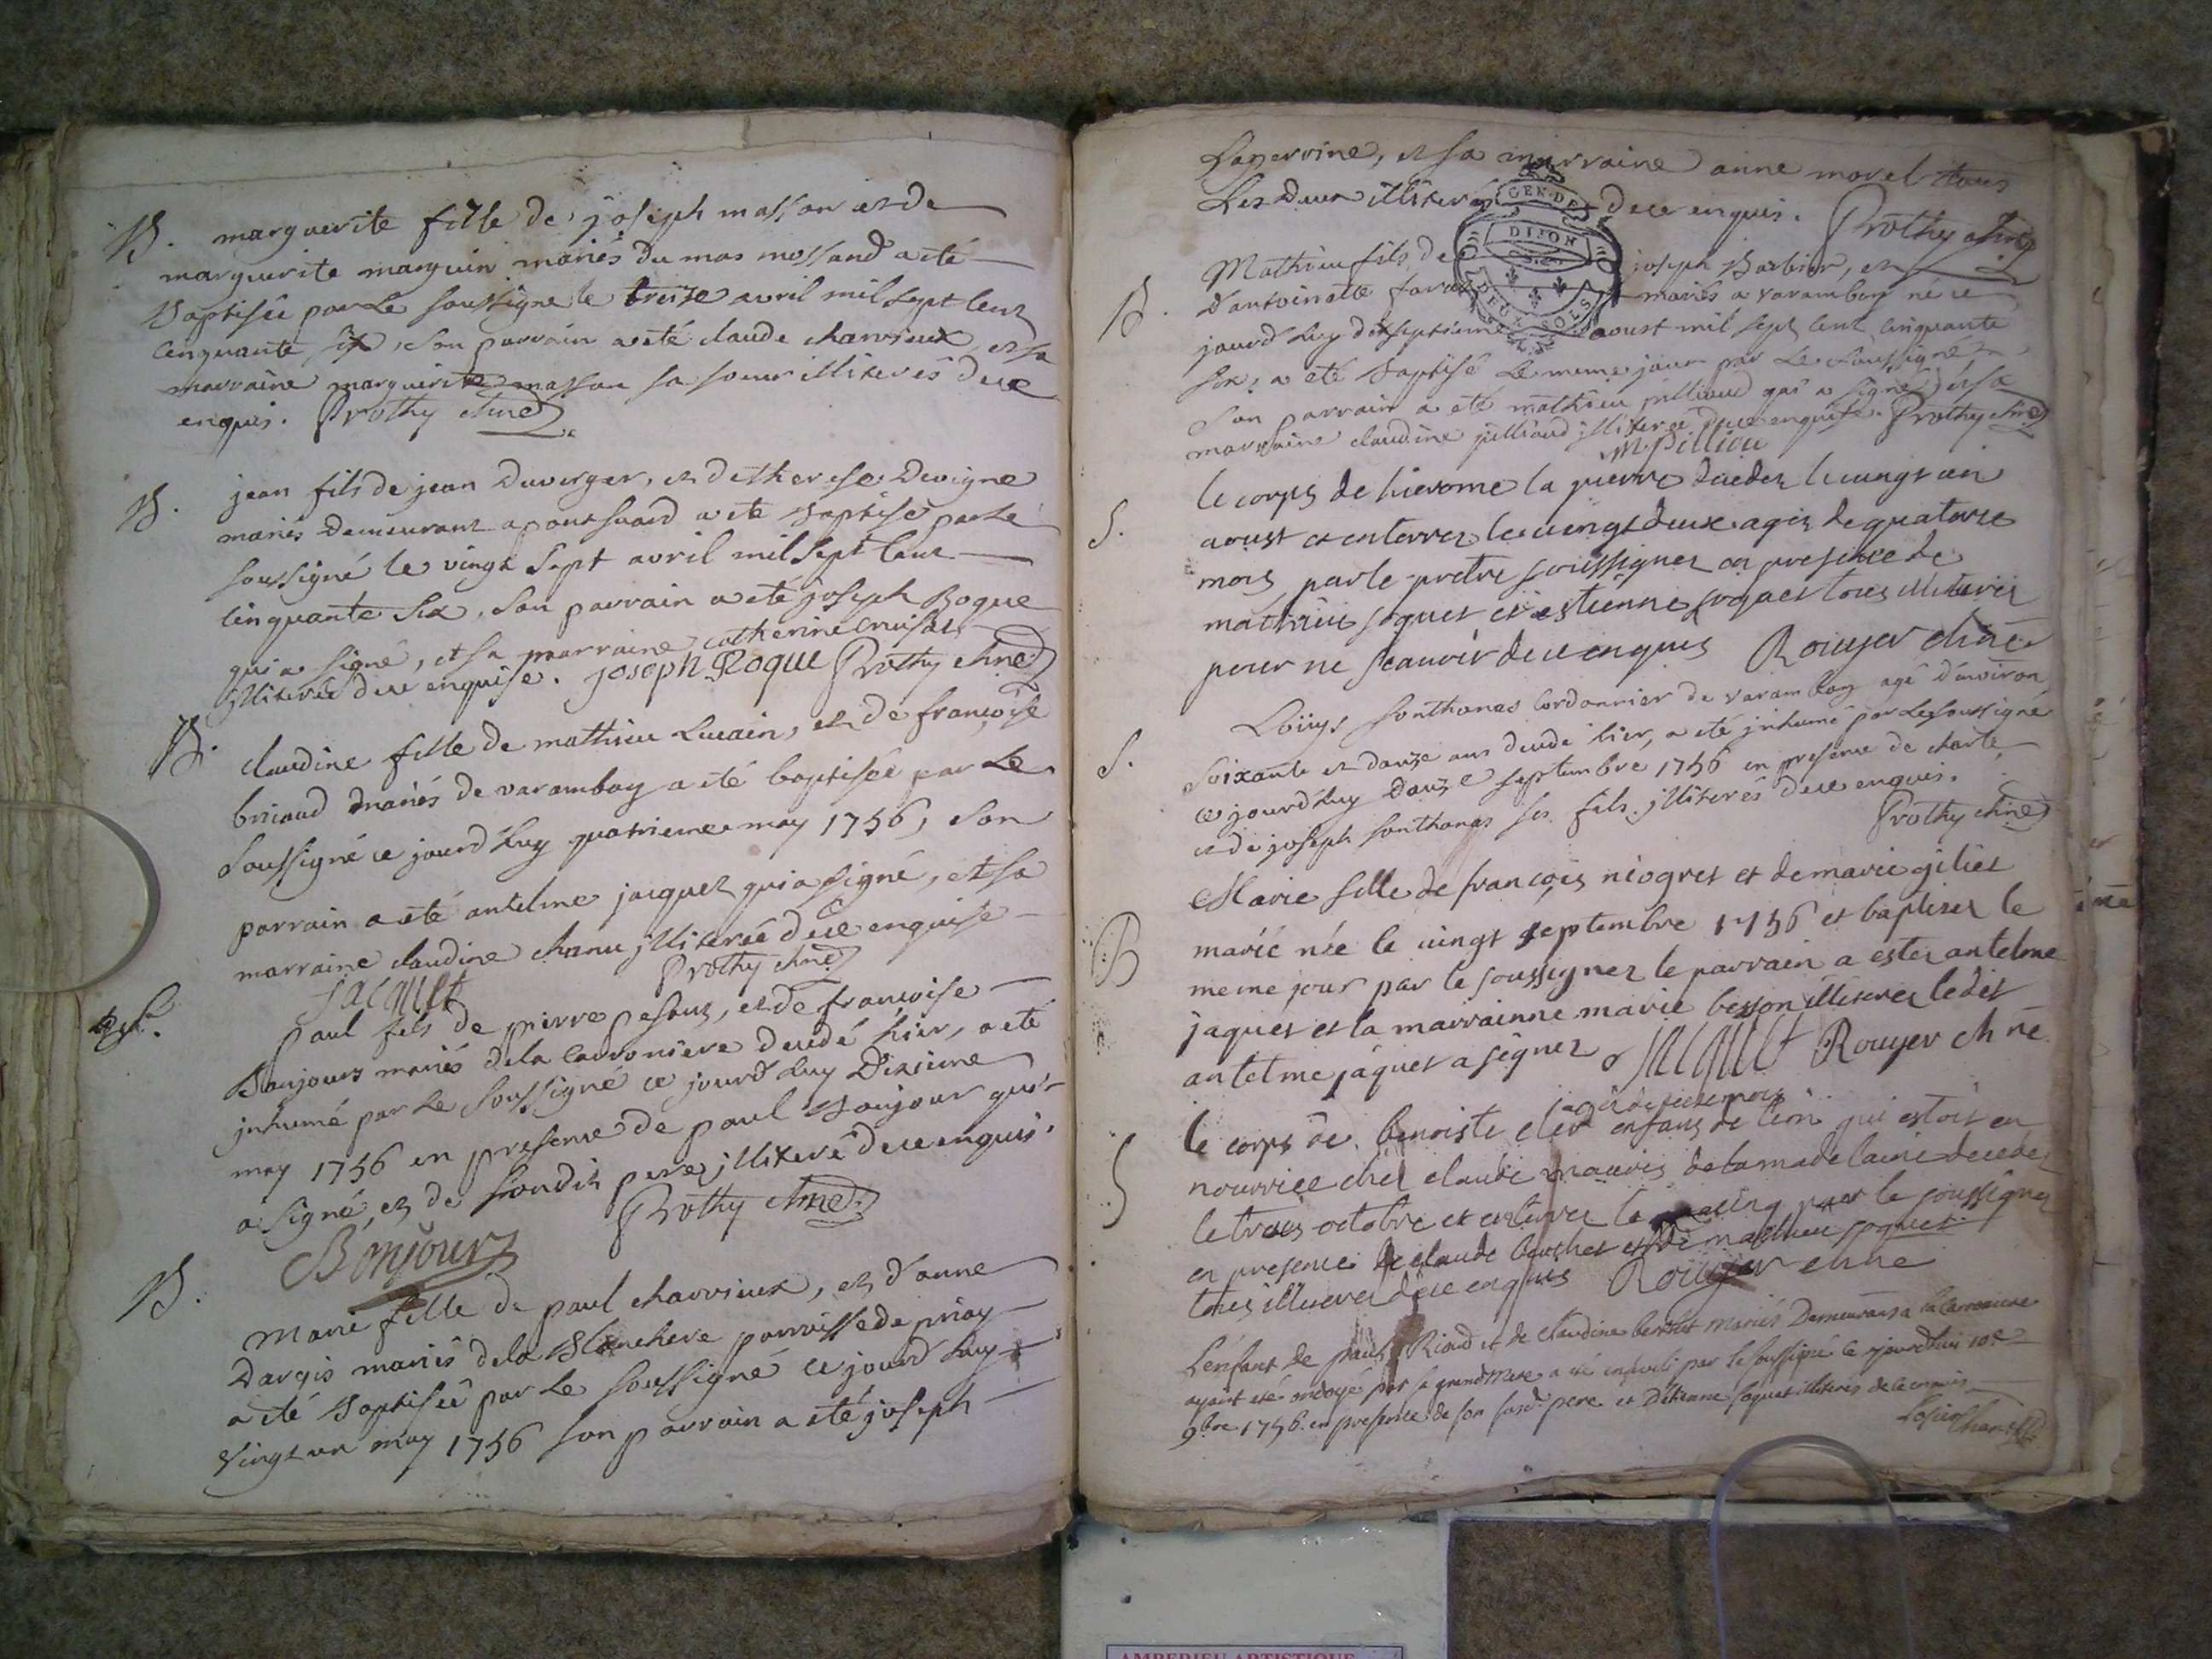 B. marguerite fille de joseph masson et de
marguerite marguin mariés du mas mossand a été
baptisée par le soussigné le treize avril mil sept cent
cinquante six, son parrain a été claude charvieux, et sa
marraine marguerite masson sa soeur illiterés de ce
enquis. Prothy chne
B. jean fils de jean Duverger, et de therese Devigne
mariés demeurant a pont suard a été baptisé par le
soussigné le vingt sept avril mil sept cent
cinquante six, son parrain a été joseph Roque
qui a signé, et sa marraine catherine
illiterée de ce enquise. joseph Roque Prothy chne
B. claudine fille de mathieu Lucain, et de françoise
briaud mariés de varambay a été baptisée par le
soussigné ce jourd'huy quatrieme may 1756, son
parrain a été antelme jacquet qui a signé, et sa
marraine claudine chanu illiterée de ce enquise
jacquet Prothy chne
S. paul fils de pierre pesous, et de françoise
Bonjours mariés de la caronniere decedé hier, a été
inhumé par le soussigné ce jourd'huy Dixieme
may 1756 en presence de paul Bonjour qui
a signé, et de sondit pere illiteré de ce enquis.
Bonjour Prothy chne
B. Marie fille de paul charvieux, et d'anne
Dargis mariés de la Blanchere parroisse de priay
a été baptisée par le soussigné ce jourd'huy
vingt un may 1756 son parrain a été joseph
Laperrine, et sa marraine anne morel tous
les deux illiterés de ce enquis. Prothy chne
GEN. DE
DIJON
DEUX SOLS
B. Mathieu fils de joseph Barbier, et
d'antoinette favre mariés a varambay né ce
jourd'huy dixseptieme aoust mil sept cent cinquante
six, a été baptisé le meme jour par le soussigné
son parrain a été mathieu jullioud qui a signé, et sa
marraine claudine julliard illiterée de ce enquise. Prothy chne
le corps de hierome la pierre decedez le vingt un
S. aoust et enterrez le vingt deux agez de quatorze
mois par le pretre soussignez en presence de
mathieu soquet et estienne soquet tous illiterez
pour ne scauoir de ce enquis Rouyer chne
Loüys sonthonas cordonnier de varambay agé d'environ
S. soixante et douze ans decedé hier, a été inhumé par le soussigné
ce jourd'huy douze septembre 1756 en presence de charle
et de joseph sonthonas ses fils illiterés de ce enquis.
Prothy chne
Marie fille de françois niogret et de marie giliet
B marié née le vingt septembre 1756 et baptizez le
meme jour par le soussignez le parrain a estez antelme
jaquet et la marrainne marie besson illiterez ledit
antelme jaquet a signez jacquet Rouyer chne
agez de seize mois
le corps de benoiste enfans de lion qui estoit en
S nourrice chez claude mauris de la madelaine decedez
le trois octobre et enterrez le cinq par le soussignez
en presence de claude berthet et de mathieu soquet
tous illiterez de ce enquis Rouyer chne
L'enfant de paul Riond et de claudine berthet mariés Demeurans a la Caronniere
ayant été ondoyé par sa grand Mere a été enseveli par le soussigné ce jourdhui 10e
9bre 1756 en presence de son susd. pere et D'étienne soquet illiterés de ce enquis